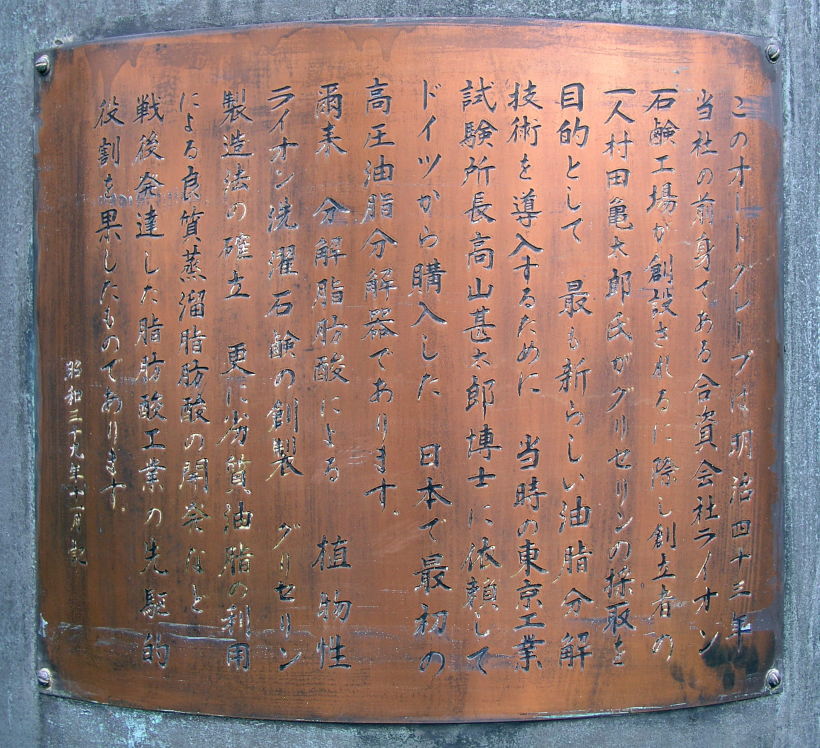 このオートクレーブは明治四十三年
当社の前身である合資会社ライオン
石鹸工場が創設されるに際し創立者の
一人村田亀太郎氏がグリセリンの採取を
目的として 最も新らしい油脂分解
技術を導入するために 当時の東京工業
試験所長高山甚太郎博士に依頼して
ドイツから購入した 日本で最初の
高圧油脂分解器であります。
爾来 分解脂肪酸による 植物性
ライオン洗濯石鹸の創製 グリセリン
製造法の確立 更に劣質油脂の利用
による良質蒸溜脂肪酸の開発など
戦後発達した脂肪酸工業の先駆的
役割を果したものであります。
昭和三十九年十一月記